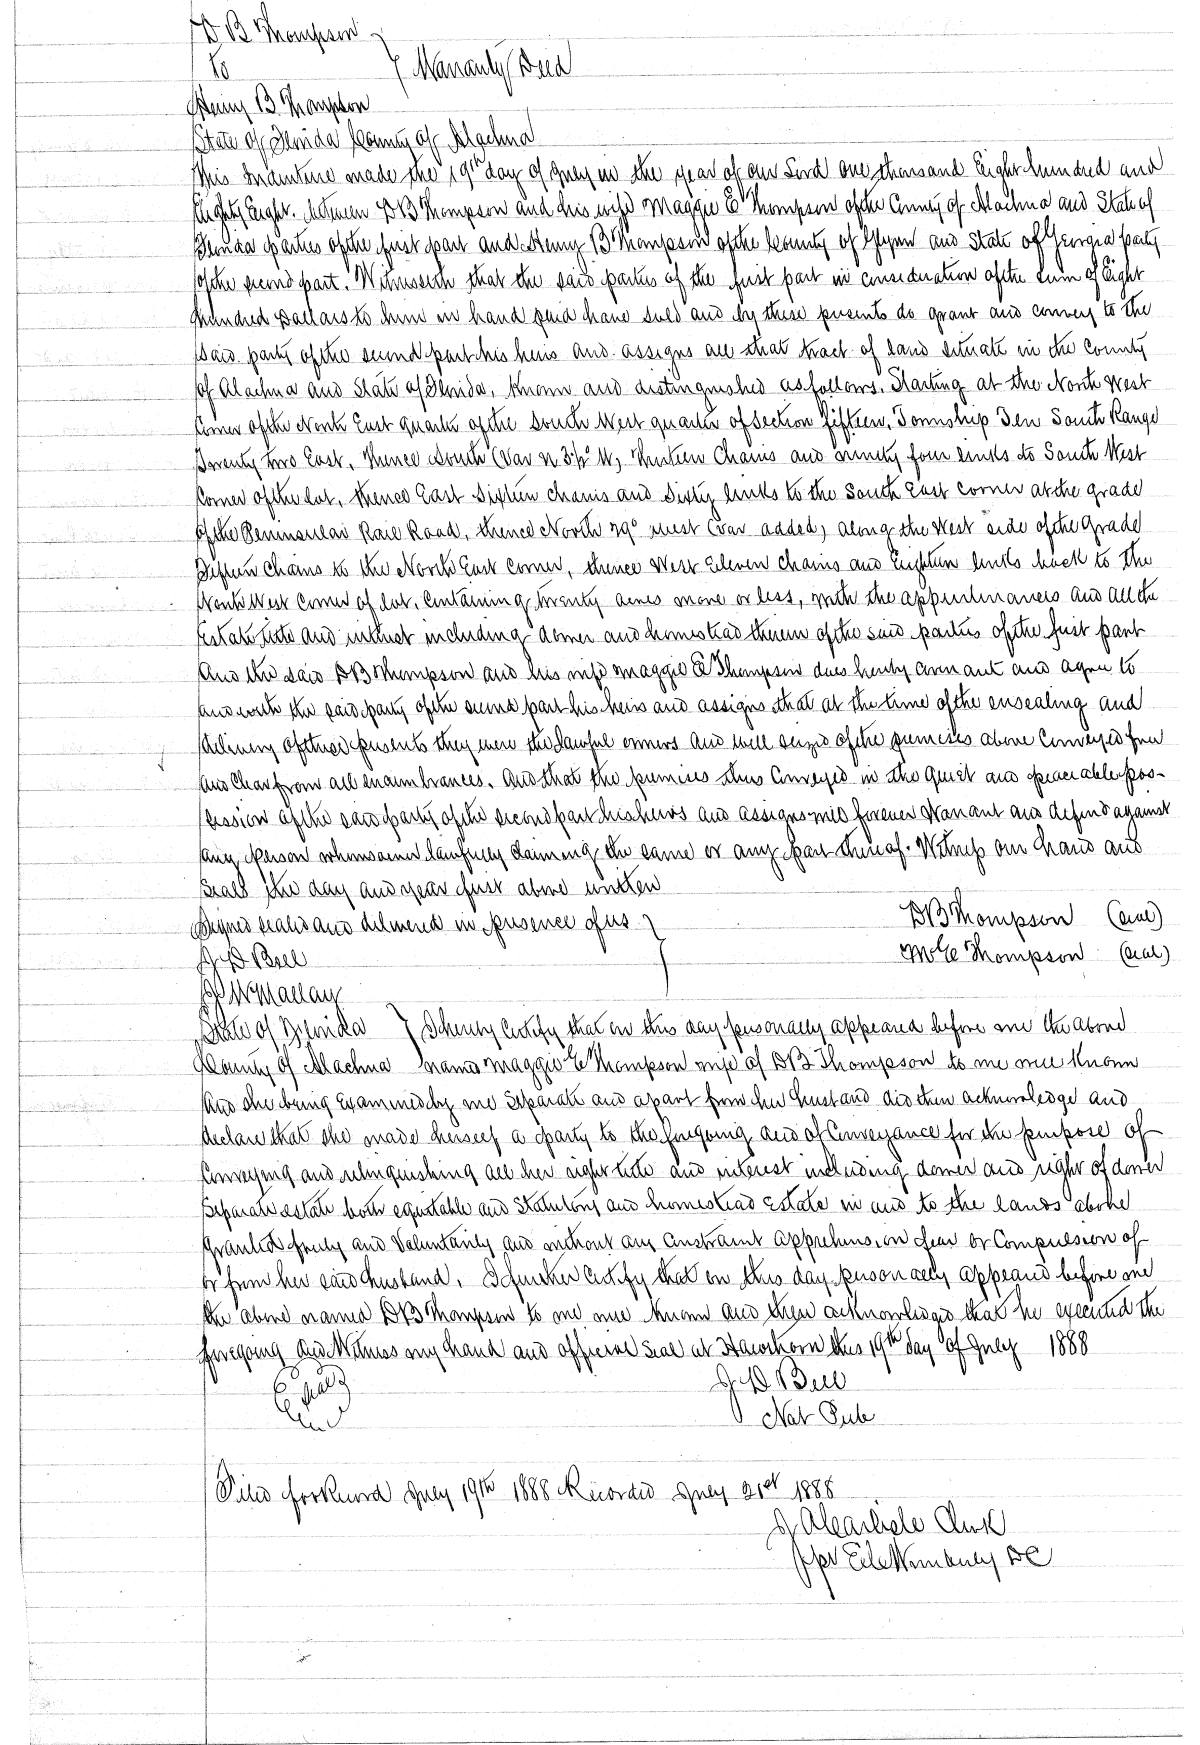 D B Thompson
to
Warranty Deed
Henry B. Thompson
State of Florida County of Alachua
This Indenture made the 19th day of July in the year of our Lord one thousand Eight hundred and
Eighty Eight. Between D B Thompson and his wife Maggie E Thompson of the County of Alachua and State of
Florida parties of the first part and Henry B Thompson of the County of Glynn and State of Georgia party
of the second part. Witnesseth that the said parties of the first part in consideration of the sum of Eight
Hundred Dollars to him in hand paid have sold and by these presents do grant and convey to the
said party of the second part his heirs and assigns all that tract of land situate in the County
of Alachua and State of Florida, known and distinguished as follows. Starting at the North West
Corner of the North East quarter of the South West quarter of Section fifteen, Township Ten South Range
Twenty two East, thence South (Var n 3½° W) thirteen Chains and ninety four links to South West
Corner of the lot, thence East Sixteen chains and Sixty links to the South East corner at the grade
of the Peninsular Rail Road, thence North 29° west (var added) along the West side of the Grade
Fifteen Chains to the North East Corner, thence West Eleven Chains and Eighteen links back to the
North West Corner of lot. Containing twenty acres more or less, with the appurtenances and all the
Estate title and interest including dower and homestead therein of the said parties of the first part
And the said D B Thompson and his wife Maggie E Thompson does hereby covenant and agree to
and with the said party of the second part his heirs and assigns that at the time of the ensealing and
delivery of these presents they were the lawful owners and well seized of the premises above Conveyed free
and Clear from all encumbrances. And that the premises thus Conveyed in the Quiet and peaceable pos-
session of the said party of the second part his heirs and assigns will forever Warrant and defend against
any person whomsoever lawfully claiming the same or any part thereof. Witness our hand and
Seals the day and year first above written
Signed sealed and delivered in presence of us
D B Thompson (seal)
J D Bell
M E Thompson (seal)
J W Mallay
State of Florida I hereby Certify that on this day personally appeared before me the above
County of Alachua named Maggie E Thompson wife of D B Thompson to me well Known
And she being Examined by me Separate and apart from her husband did then acknowledge and
declare that she made herself a party to the foregoing deed of Conveyance for the purpose of
Conveying and relinquishing all her right title and interest including dower and right of dower
Separate estate both equitable and Statutory and homestead Estate in and to the lands above
granted freely and Voluntarily and without any Constraint apprehension fear or Compulsion of
or from her said husband. I further Certify that on this day personally appeared before me
the above named D B Thompson to me well known and then acknowledged that he executed the
foregoing deed Witness my hand and official seal at Hawthorn this 19th day of July 1888
seal
J D Bell
Not Pub
Filed for Record July 19th 1888 Recorded July 21st 1888
J A Carlisle Clerk
DC